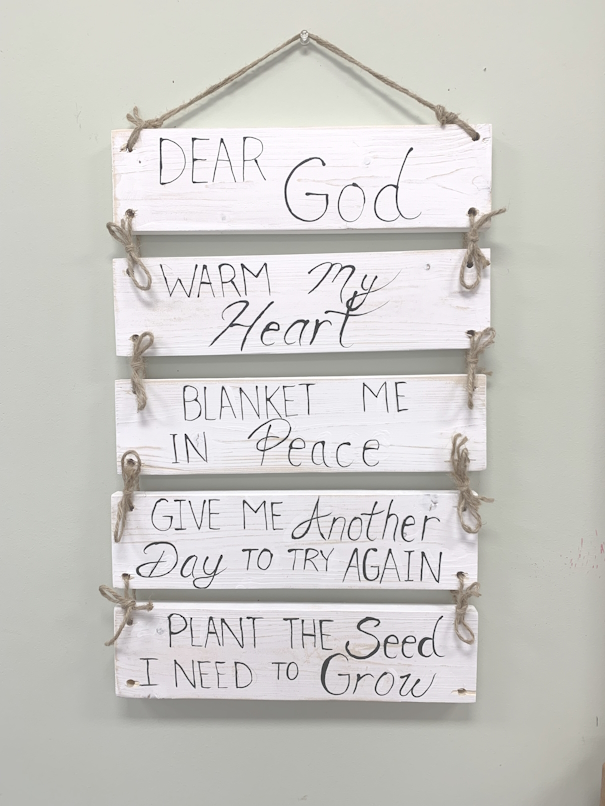 DEAR God
WARM My
Heart
BLANKET ME
IN Peace
GIVE ME Another
Day TO TRY AGAIN
PLANT THE Seed
I NEED TO Grow